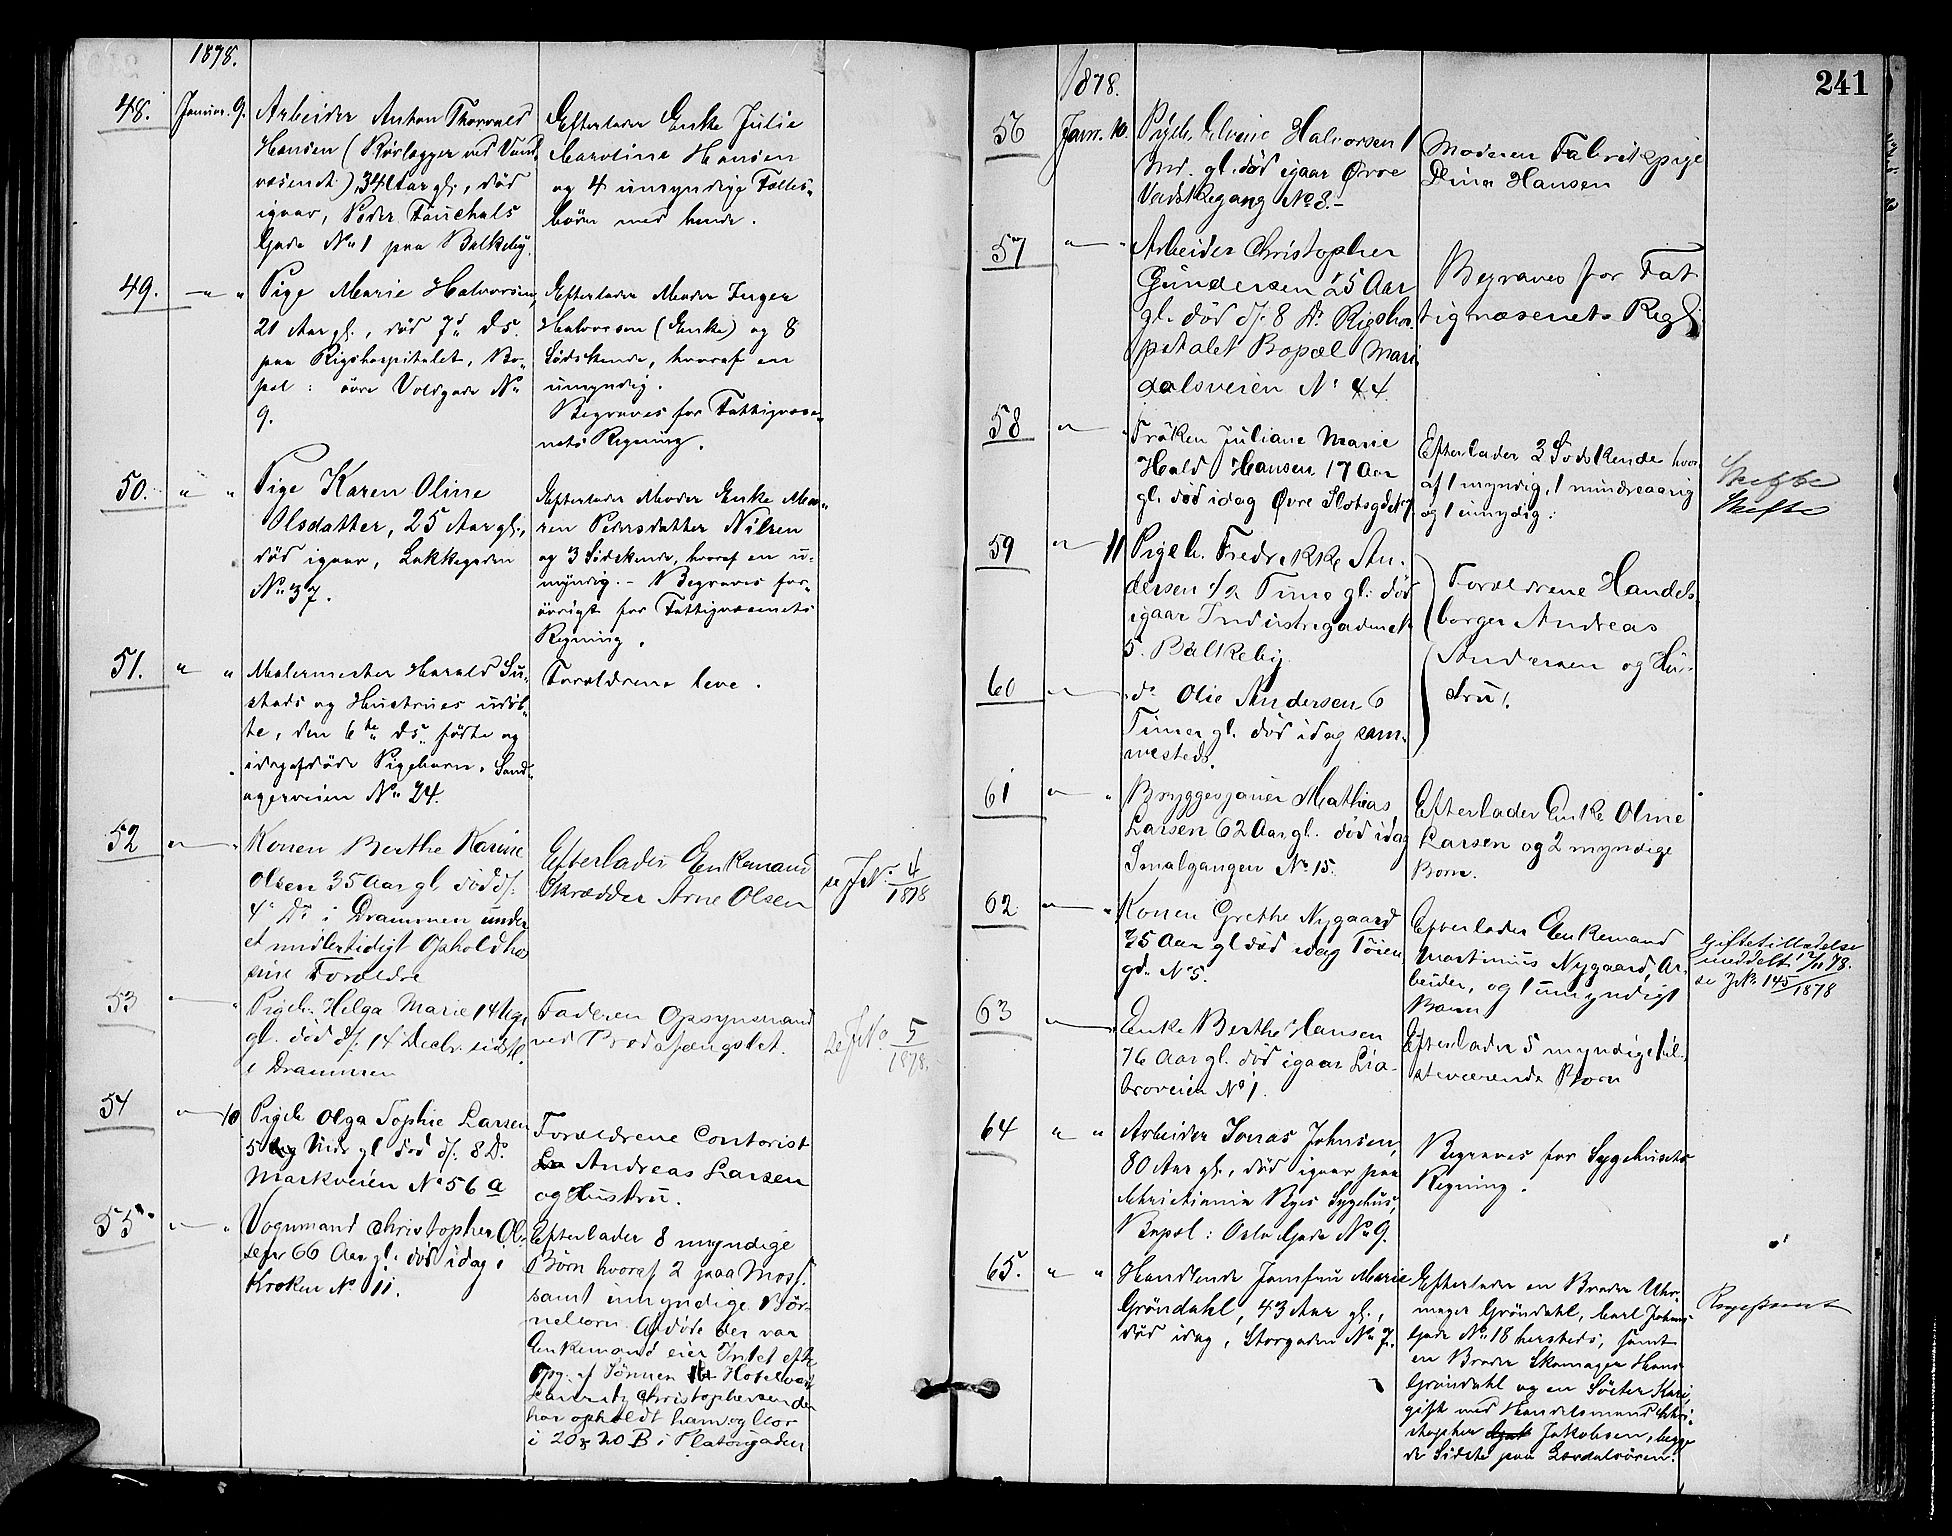 1878.
48. Januar. 9. Arbeider Anton Thorvald
Hansen (Rørlægger ved Vand-
væsendt), 34 Aar gl., død
igaar, Peder
Gade No 1 paa Balkeby.
Efterlader Enke Julie
Caroline Hansen
og 4 umyndige Fælles-
börn med hende.
49. — " " Pige Marie Halvorsen,
21 Aar gl., död 7d ds.
paa Rigshospitalet, Bo-
pæl: övre Voldgade No
9.
Efterlader Moder Inger
Halvorsen (Enke) og 8
Södskende, hvoraf en
umyndig.
Begraves for Fattigvæse-
nets Regning.
50. " " Pige Karen Oline
Olsdatter, 25 Aar gl.,
död igaar, Lakkegaden
No 37.
Efterlader Moder Enke Ma-
ren Pedersdatter Nilsen
og 3 Södskende, hvoraf en u-
myndig. - Begraves for-
övrigt for Fattigvæsenets
Regning.
51. " " Malermester Harald Su-
stads og Hustrues udöb-
te, den 6te ds. födte og
idag afdöde Pigebarn. Sand-
agerveien No 24.
Forældrene leve.
52 " — " Konen Berthe Karine
Olsen 35 Aar gl. död d/:
4' Ds i Drammen under
et midlertidigt Ophold hos
sine Forældre
Efterlader Enkemand
Skrædder Arne Olsen
se J No. 4/1878
53 " — " Pigeb. Helga Marie 14 Uger
gl. död d/: 14 Decbr. sidstl.
i Drammen
Faderen Opsynsmand
ved Bodsfængslet.
se J No. 5/1878.
54 " — 10 Pigeb. Olga Sophie Larsen
5 Mdr gl död d/: 8 Ds
Markveien No 56 a
Forældrene Contorist
Andreas Larsen
og Hustru.
55 " — " Vognmand Christopher Ol-
sen 66 Aar gl. död idag i
Kroken No 11.
Efterlader 8 myndige
Börn hvoraf 2 paa Moss.
samt umyndige Bör-
nebörn. Afdöde der var
Enkemand eier Intet efter
Opg. af Sönnen Hotelvært
Christophersen der
har opholdt ham og bor
i 20 & 20 B i Platougaden
241
1878.
56 Janr. 10. Pigeb. Elvine Halvorsen 1
Md. gl. død igaar Øvre
Vadskegang No 8. -
Moderen Fabrikspige
Dina Hansen
57 " — " Arbeider Christopher
Gundersen 25 Aar
gl. död d/: 8 Ds Rigsho-
spitalet Bopæl Mari-
dalsveien No 44.
Begraves for Fat
tigvæsenets Regn.
58 " — " Fröken Juliane Marie
Hald Hansen 17 Aar
gl. död idag Øvre Slotsgd No 7
Efterlader 3 Södskende hvor
af 1 myndig, 1 mindreaarig
og 1 umyndig.
Skifte
Skifte
59 " — 11 Pigeb. Fredrikke An-
dersen 1/2 Time gl. död
igaar Industrigaden No
5. Balkeby.
Forældrene Handels-
borger Andreas
Andersen og Hu-
stru.
60 " — ds Olie Andersen 6
Timer gl. död idag sam-
mesteds.
61 " — " Bryggesjouer Mathias
Larsen 62 Aar gl. död idag
Smalgangen No 15.
Efterlader Enke Oline
Larsen og 2 myndige
Börn.
62 " — " Konen Grethe Nygaard
35 Aar gl död idag Töien
gd. No 5.
Efterlader Enkemand
Martinius Nygaard, Ar-
beider, og 1 umyndigt
Barn
Giftetilladelse
meddelt 12/11 78.
se J No 145/1878
63 " — Enke Berthe Hansen
76 Aar gl. död igaar Lia-
broveien No 1.
Efterlader 5 myndige til-
steværende Börn
64 " " Arbeider Jonas Johnsen,
80 Aar gl., död igaar paa
Christiania Byes Sygehus,
Bopæl: Oslo Gade No 9.
Begraves for Sygehusets
Regning.
65. " " Handlende Jomfru Marie
Gröndahl, 43 Aar gl.,
död idag, Storgaden No 7.
Efterlader en Broder Uhr-
mager Gröndahl, Carl Johans
Gade No 18 hersteds, samt
en Broder Skomager Hans
Gröndahl og en Söster Kari,
gift med Handelsmand Chri-
stopher Jakobsen, begge
de Sidste paa Lærdalsören.